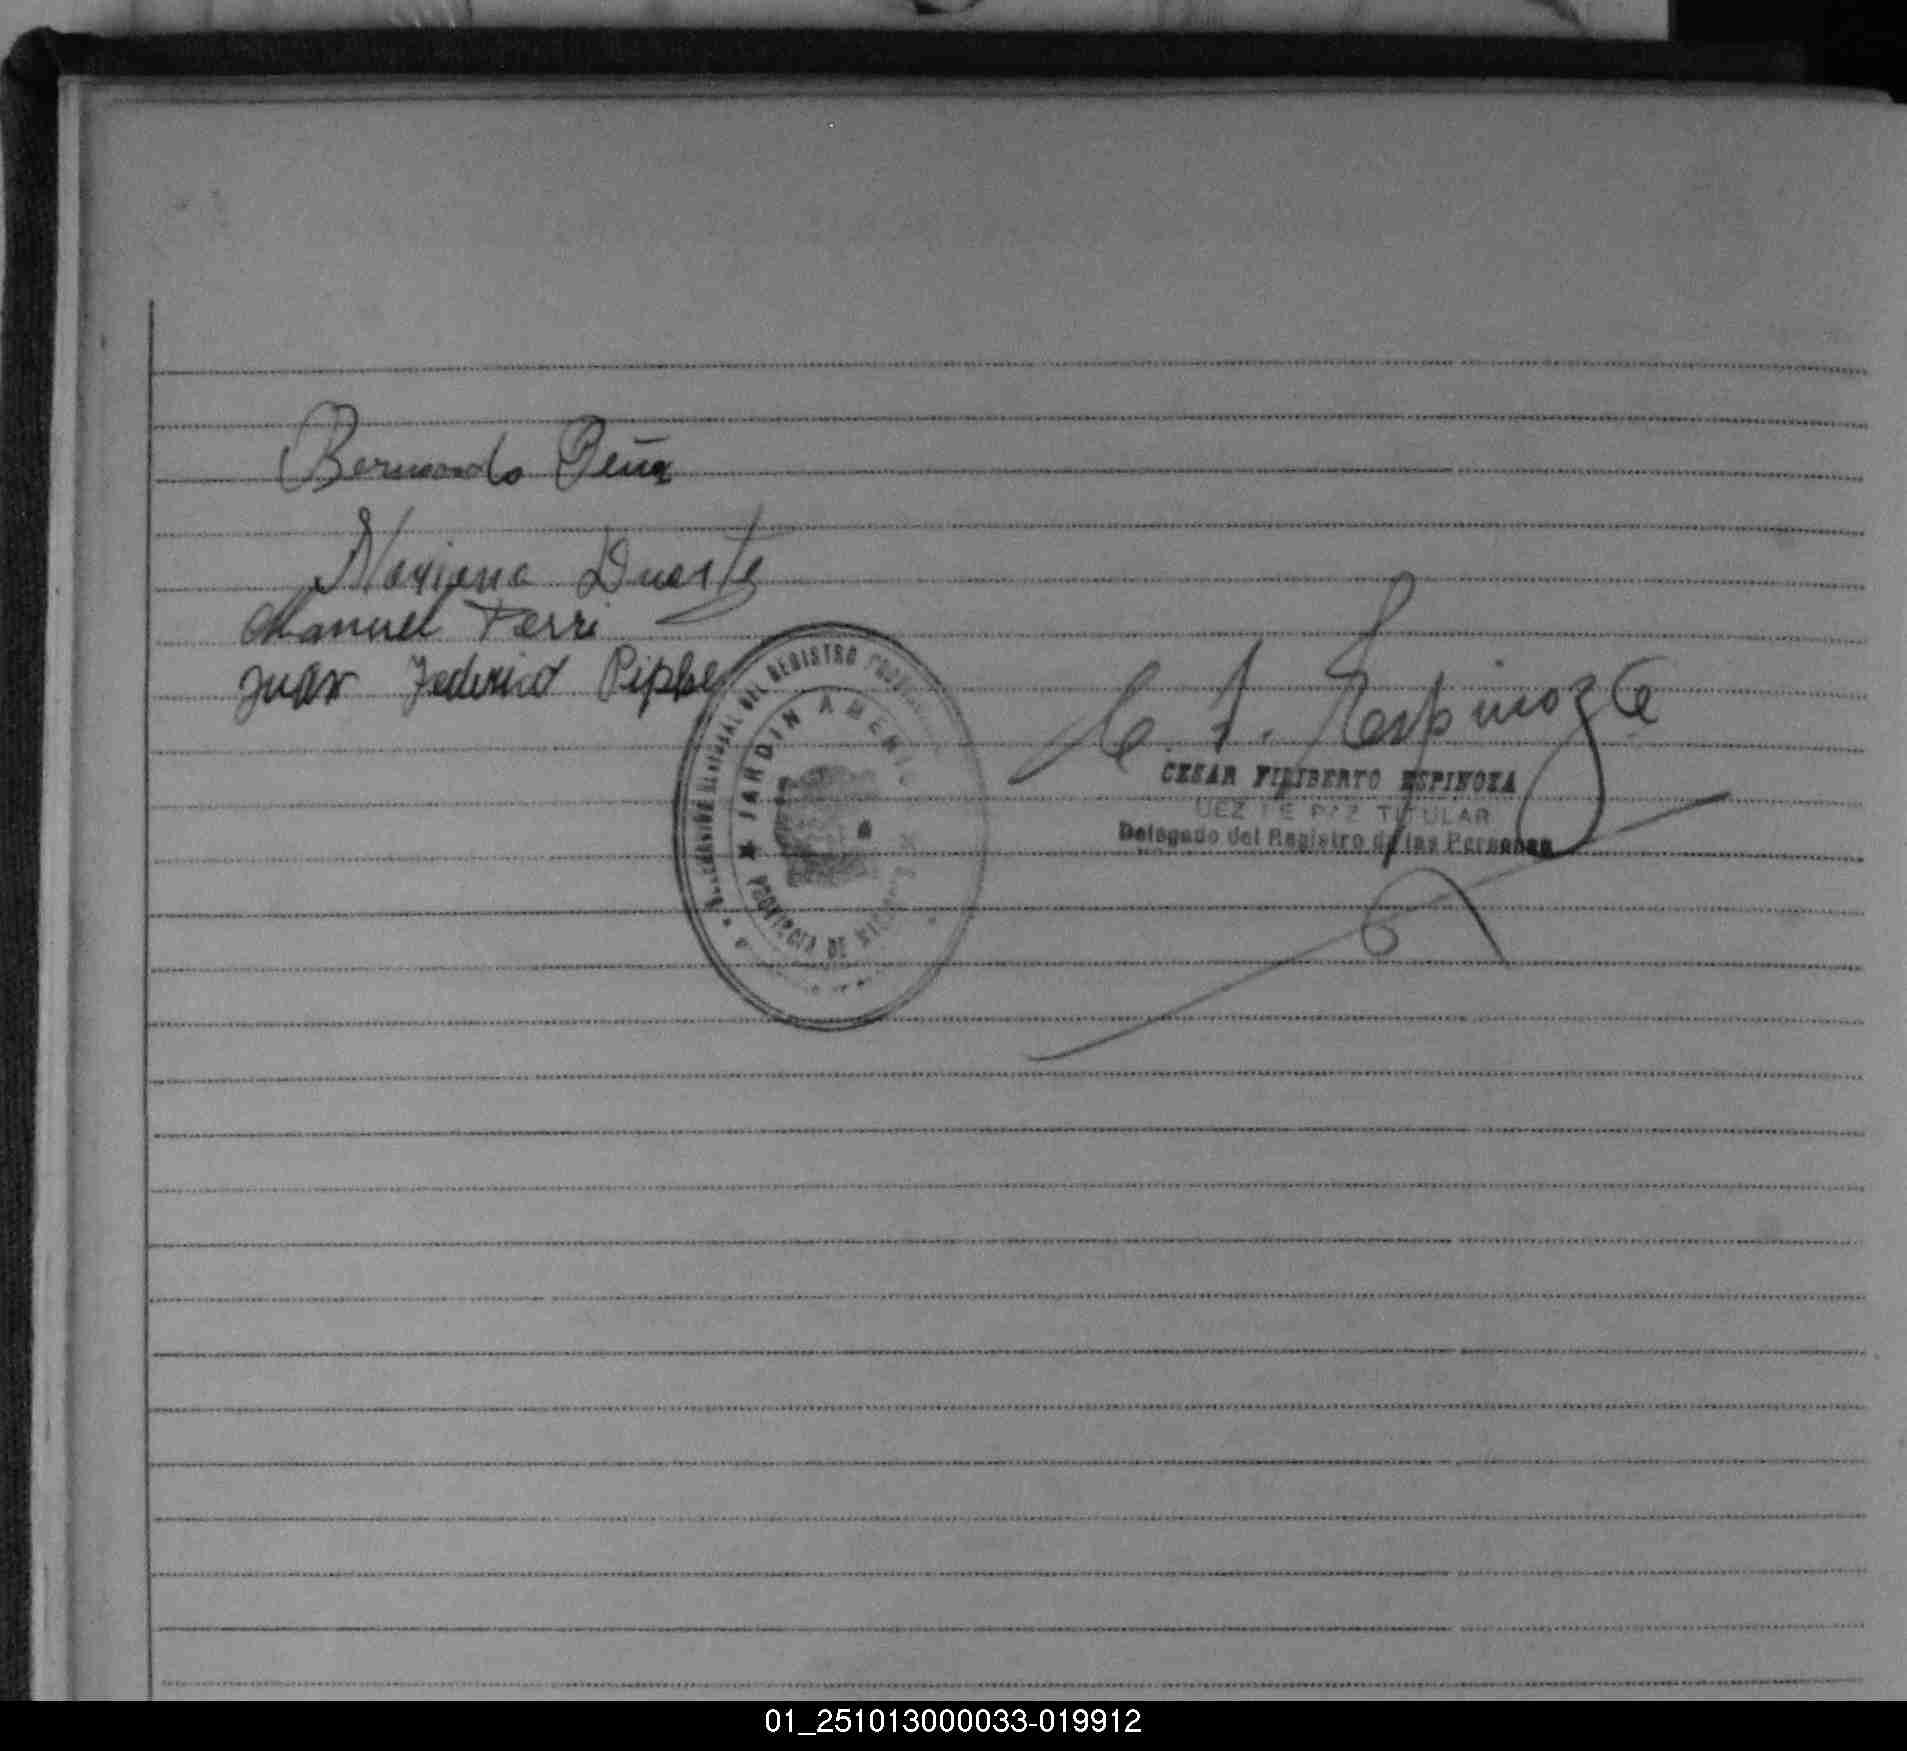 Bernardo Peña
Mariana Duarte
Manuel Ferri
Juan Federico
DEL REGISTRO
JARDIN AMERIC
PROVINCIA DE MISIONES
C. F. Espinoza
CESAR FILIBERTO ESPINOZA
UEZ DE PAZ TITULAR
Delegado del Registro de las Personas
01_251013000033-019912